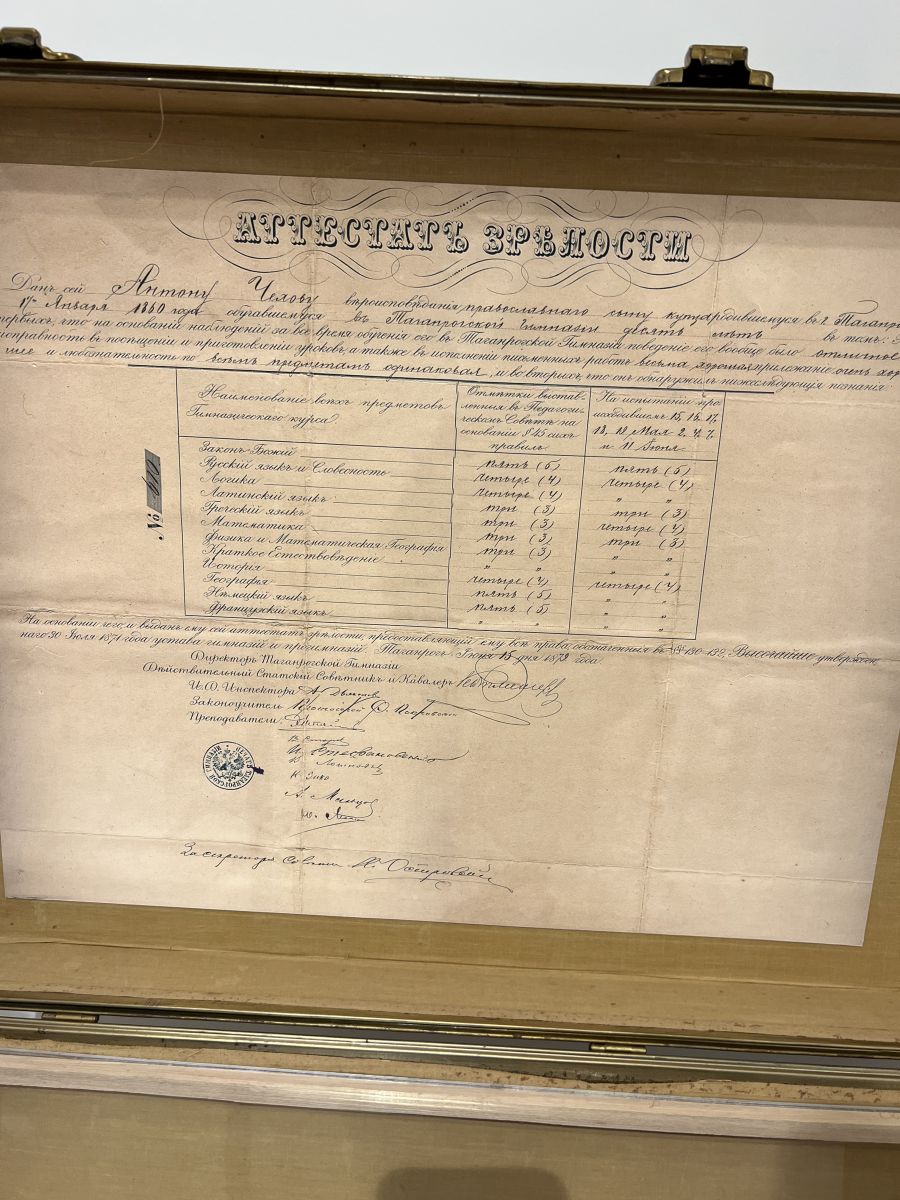 АТТЕСТАТЪ ЗРѢЛОСТИ
Данъ сей Антону Чехову вѣроисповѣданія православнаго сыну
17го Января 1860 года обучавшемуся въ Таганрогской Гимназіи десять лѣтъ въ томъ:
первыхъ, что на основаніи наблюденій за все время обученія его въ Таганрогской Гимназіи поведеніе его вообще было отличное
исправность въ посѣщеніи и приготовленіи уроковъ, а также въ исполненіи письменныхъ работъ весьма хорошая прилежаніе очень хор
шее и любознательность по всѣмъ предметамъ одинаковая, и во вторыхъ, что онъ обнаружилъ нижеслѣдующія познанія:
Наименованіе всѣхъ предметовъ
Гимназическаго курса
Отмѣтки выстав-
ленныя въ Педагоги-
ческомъ Совѣтѣ на
основаніи § 45 сихъ
правилъ
На испытаніи про-
исходившемъ 15, 16, 17,
18, 19 Мая 2, 4, 7,
и 11 Іюня
Законъ Божій пять (5) пять (5)
Русскій языкъ и Словесность четыре (4) четыре (4)
Логика четыре (4) „ „
Латинскій языкъ три (3) три (3)
Греческій языкъ три (3) четыре (4)
Математика три (3) три (3)
Физика и Математическая Географія три (3) „ „
Краткое Естествовѣденіе „ „ „ „
Исторія четыре (4) четыре (4)
Географія пять (5) „ „
Нѣмецкій языкъ пять (5) „ „
Французскій языкъ „ „ „ „
№ 610
На основаніи чего, и выданъ ему сей аттестатъ зрѣлости, предоставляющій ему всѣ права, обозначенныя въ §§ 130-132, Высочайше утвержден
наго 30 Іюля 1871 года устава гимназій и прогимназій. Таганрогъ. Іюня 15 дня 1879 года.
Директоръ Таганрогской Гимназіи
Дѣйствительный Статскій Совѣтникъ и Кавалеръ
И. Д. Инспектора А. Дьяконов
Законоучитель Протоіерей Ѳ. Покровскій
Преподаватели:
А. Мальцов
ПЕЧАТЬ ТАГАНРОГСКОЙ ГИМНАЗІИ
За секретаря Совѣта